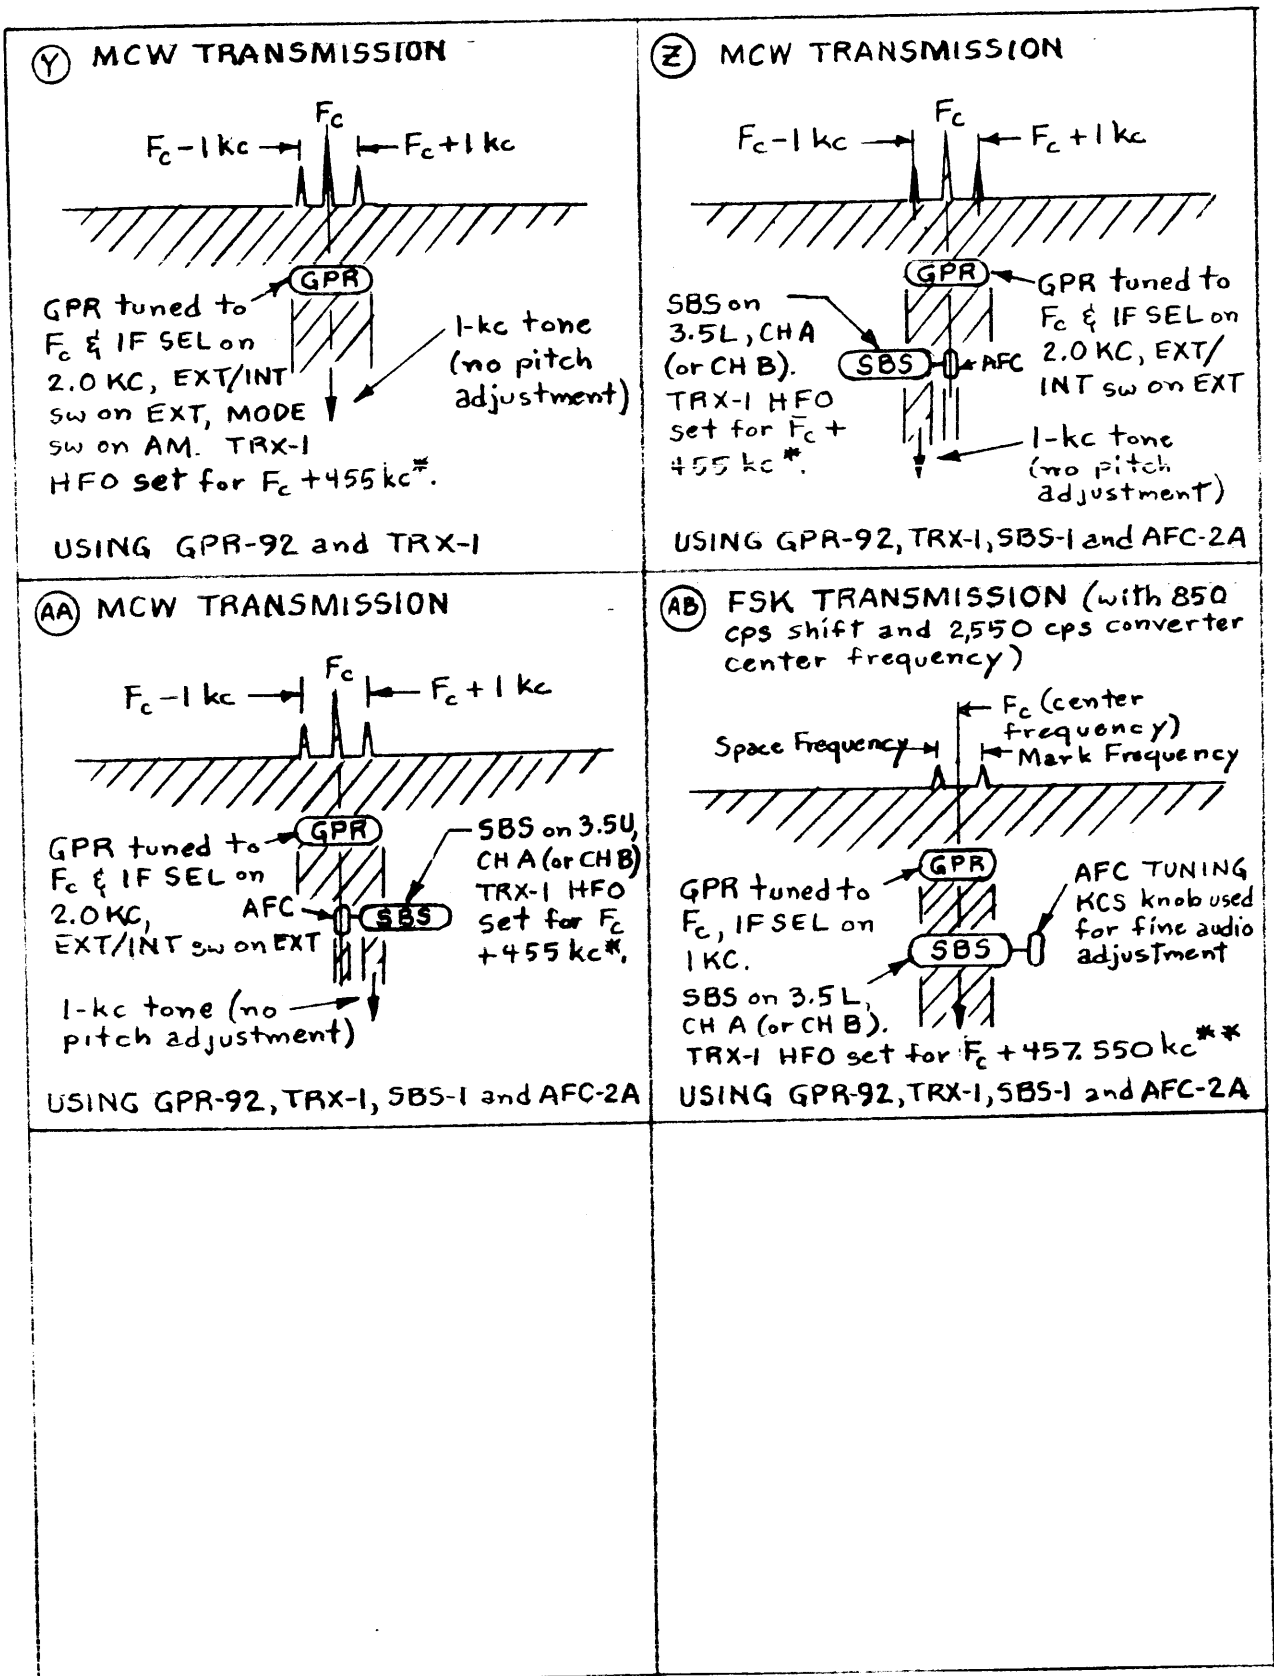 Y MCW TRANSMISSION
Fc
Fc-1 kc Fc+1 kc
GPR
GPR tuned to
Fc & IF SEL on
2.0 KC, EXT/INT
sw on EXT, MODE
sw on AM. TRX-1
HFO set for Fc +455 kc*.
1-kc tone
(no pitch
adjustment)
USING GPR-92 and TRX-1
Z MCW TRANSMISSION
Fc
Fc-1 kc Fc+1 kc
GPR
SBS on
3.5L, CH A
(or CH B).
TRX-1 HFO
set for Fc +
455 kc*.
SBS
AFC
GPR tuned to
Fc & IF SEL on
2.0 KC, EXT/
INT sw on EXT
1-kc tone
(no pitch
adjustment)
USING GPR-92, TRX-1, SBS-1 and AFC-2A
AA MCW TRANSMISSION
Fc
Fc-1 kc Fc+1 kc
GPR
GPR tuned to
Fc & IF SEL on
2.0 KC,
EXT/INT sw on EXT
AFC
SBS
SBS on 3.5U,
CH A (or CH B)
TRX-1 HFO
set for Fc
+455 kc*.
1-kc tone (no
pitch adjustment)
USING GPR-92, TRX-1, SBS-1 and AFC-2A
AB FSK TRANSMISSION (with 850
cps shift and 2,550 cps converter
center frequency)
Fc (center
frequency)
Space Frequency
Mark Frequency
GPR
GPR tuned to
Fc, IF SEL on
1 KC.
SBS
AFC TUNING
KCS knob used
for fine audio
adjustment
SBS on 3.5L,
CH A (or CH B).
TRX-1 HFO set for Fc +457.550 kc**
USING GPR-92, TRX-1, SBS-1 and AFC-2A